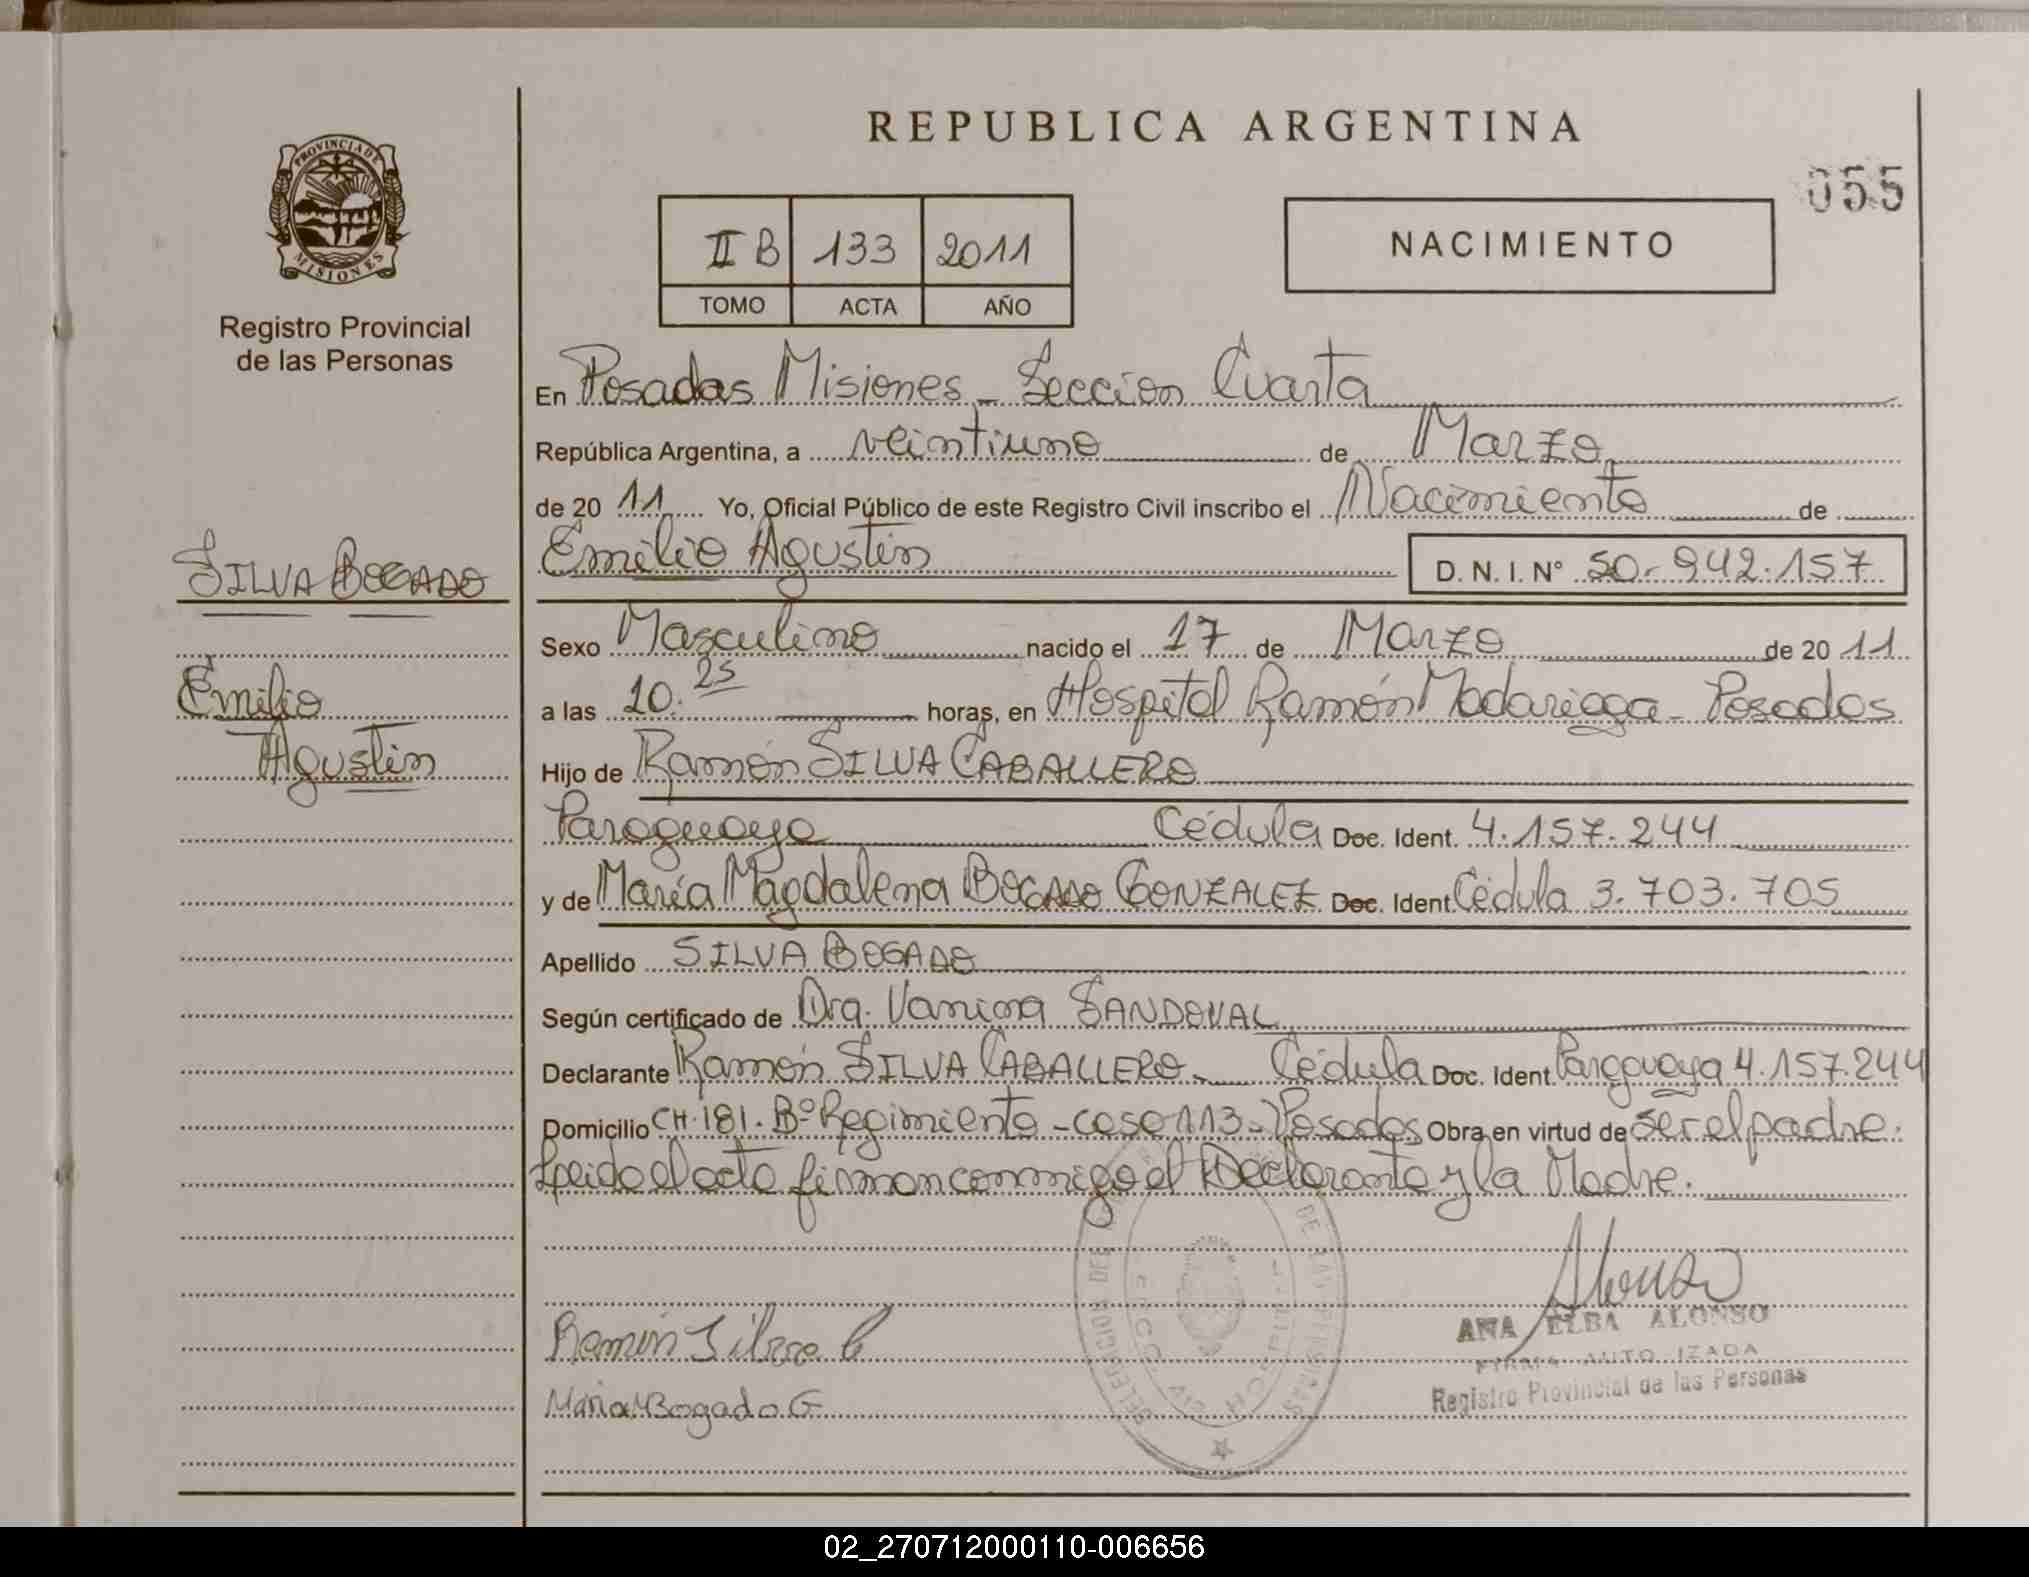 REPUBLICA ARGENTINA
055
PROVINCIA DE
MISIONES
Registro Provincial
de las Personas
II B 133 2011
TOMO ACTA AÑO
NACIMIENTO
En Posadas Misiones - Sección Cuarta
República Argentina, a veintiuno de Marzo
de 20 11 Yo, Oficial Público de este Registro Civil inscribo el Nacimiento de
Emilio Agustín D. N. I. N° 50.942.157
SILVA BOGADO
Emilio
Agustín
Sexo Masculino nacido el 17 de Marzo de 20 11
a las 10.25 horas, en Hospital Ramón Madariaga - Posadas
Hijo de Ramón SILVA CABALLERO
Paraguaya Cédula Doc. Ident. 4.157.244
y de María Magdalena BOGADO GONZALEZ Doc. Ident. Cédula 3.703.705
Apellido SILVA BOGADO
Según certificado de Dra. Vanina SANDOVAL
Declarante Ramón SILVA CABALLERO - Cédula Doc. Ident. Paraguaya 4.157.244
Domicilio CH.181. Bº Regimiento - casa 113 - Posadas Obra en virtud de ser el padre.
Leido el acta firman conmigo el Declarante y la Madre.
Alonso
ANA ELBA ALONSO
FIRMA AUTORIZADA
Registro Provincial de las Personas
Ramón Silva C
Maria M Bogado G
02_270712000110-006656